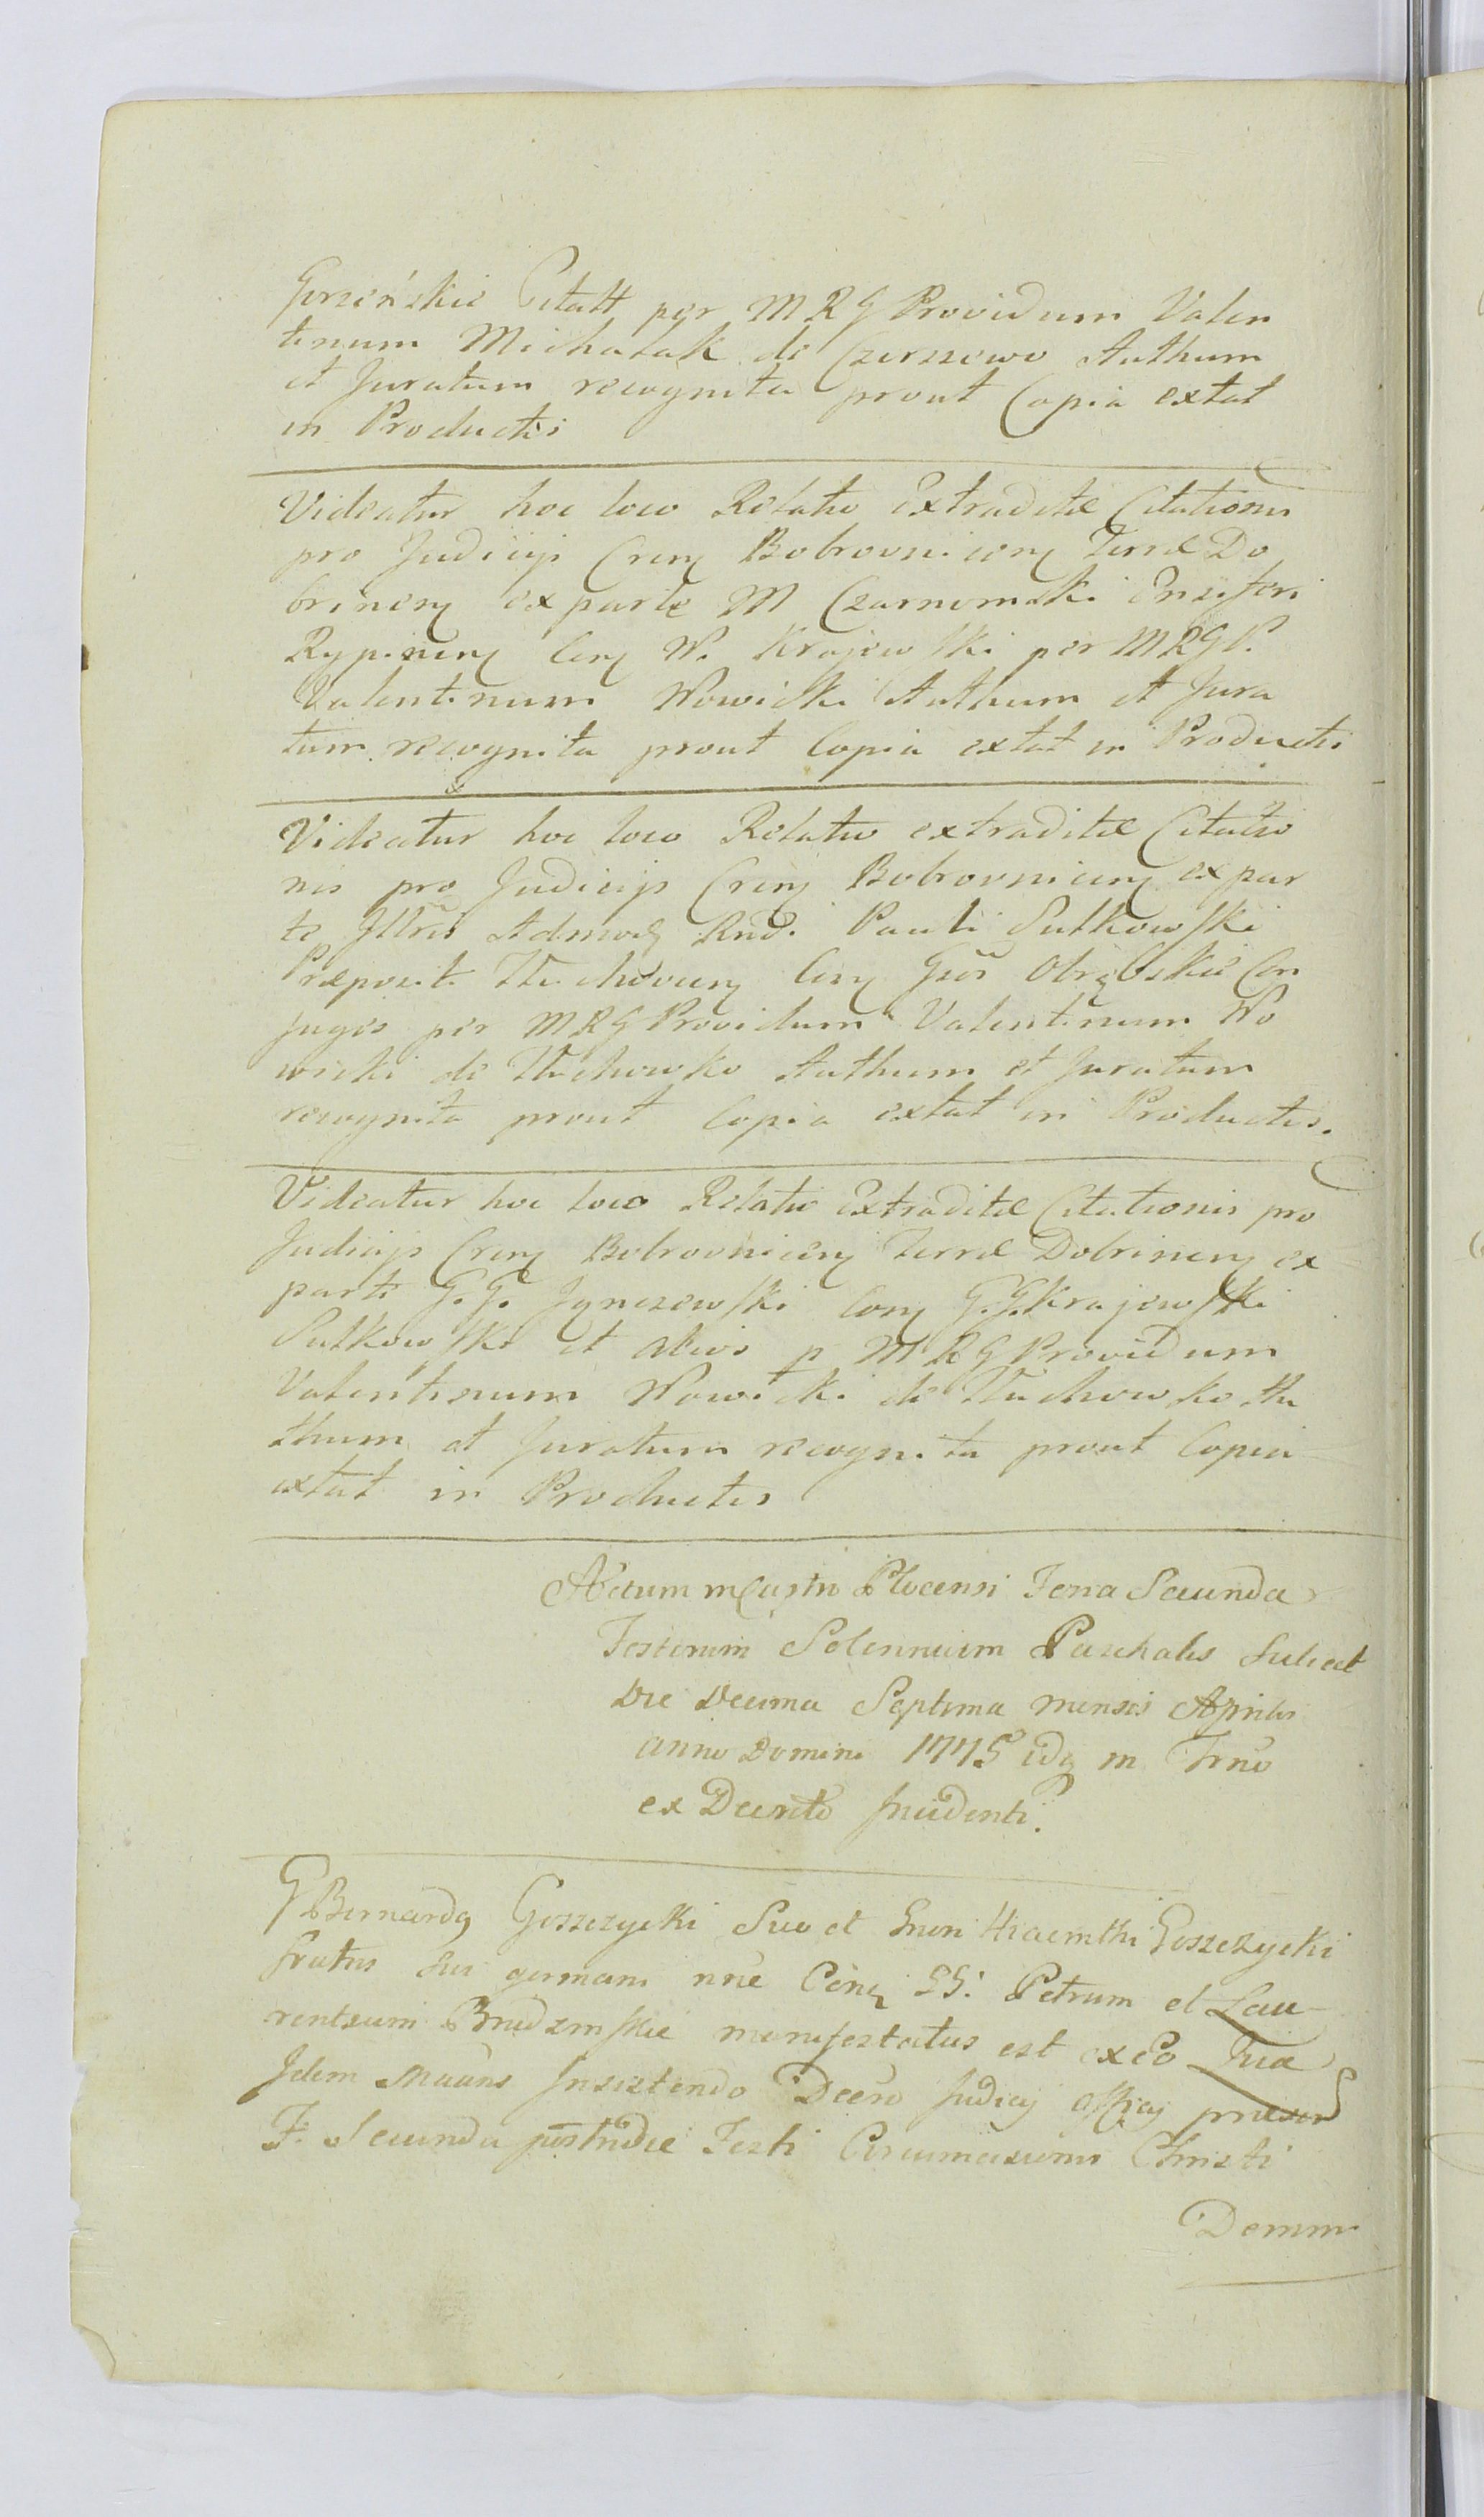 Gorzeńskie Citatt per MRG Providum Valen
tinum Michalak de Czerszewo Authum
et Juratum recognita prout Copia extat
in Productis
Videatur hoc loco Relatio Extraditæ Citationis
pro Judicijs Cren Bobrovnicen Terræ Do
brinen ex parte M Czarnomski Ensiferi
Rypinen Con W. Krajewski per MRG P.
Valentinum Nowicki Authum et Jura
tum recognita prout Copia extat in Productis
Videatur hoc loco Relatio extraditæ Citatio
nis pro Judicijs Cren Bobrovnicen ex par
te Jllris Admod Rnd. Pauli Sutkowski
Præposit Tłuchovien Con Gsos Otrębskie Con
juges per MRG Providum Valentinum No
wicki de Tłuchowko Authum et Juratum
recognita prout Copia extat in Productis.
Videatur hoc loco Relatio Extraditæ Citationis pro
Judicijs Cren Bobrovnicen Terræ Dobrinen ex
parte G. G. Jgnczewski Con G. G. Krajewski
Sutkowski et alios p MRG Providum
Valentinum Nowicki de Tłuchowko Au
thum et Juratum recognita prout Copia
extat in Productis
Actum in Castro Plocensi Feria Secunda
Festorum Solennium Paschalis scilicet
Die Decima Septima mensis Aprilis
anno Domini 1775 idq in Trno
ex Decreto Jncidenti.
G Bernardq Goszczycki Suo et Gnosi Hiacinthi Goszczycki
fratris sui germani nne Conq GG. Petrum et Lau-
rentium Brudzinskie manifestatus est ex eo Quia
Jdem Mauns Jnsistendo Decro Judicij officij præsen
F. Secunda postridie Festi Circumcisionis Christi
Domini